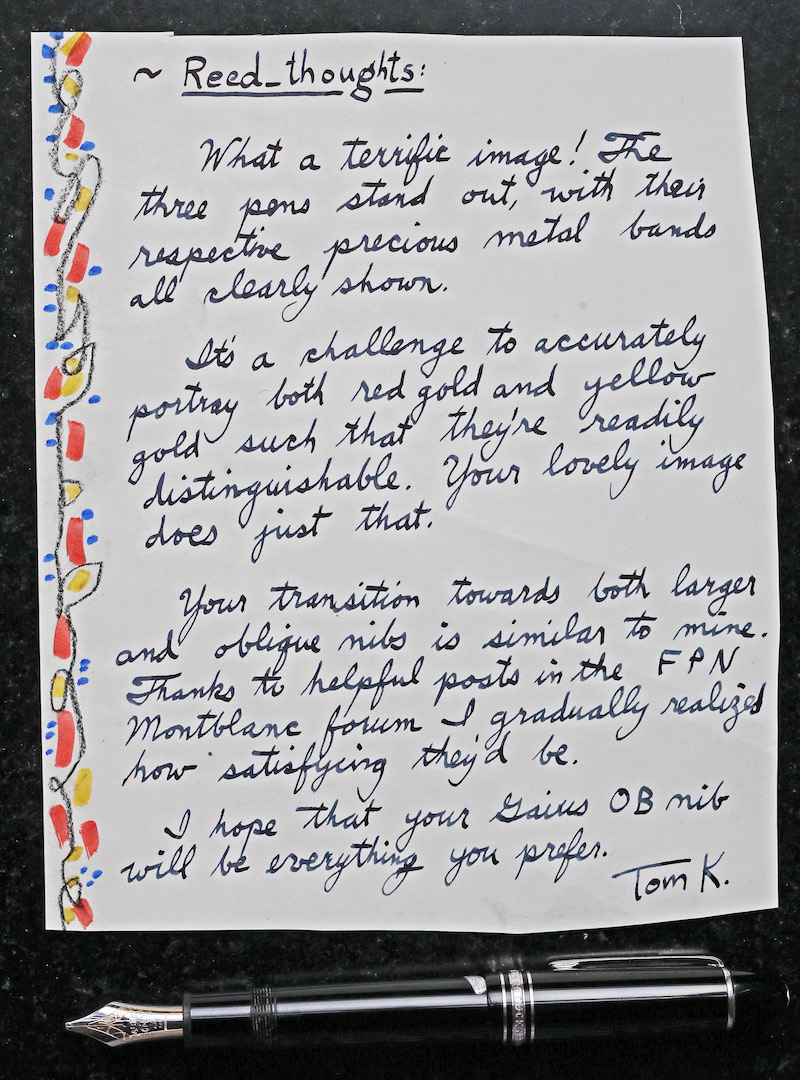 ~ Reed_thoughts:
What a terrific image! The
three pens stand out, with their
respective precious metal bands
all clearly shown.
It's a challenge to accurately
portray both red gold and yellow
gold such that they're readily
distinguishable. Your lovely image
does just that.
Your transition towards both larger
and oblique nibs is similar to mine.
Thanks to helpful posts in the FPN
Montblanc forum I gradually realized
how satisfying they'd be.
I hope that your Gaius OB nib
will be everything you prefer.
Tom K.